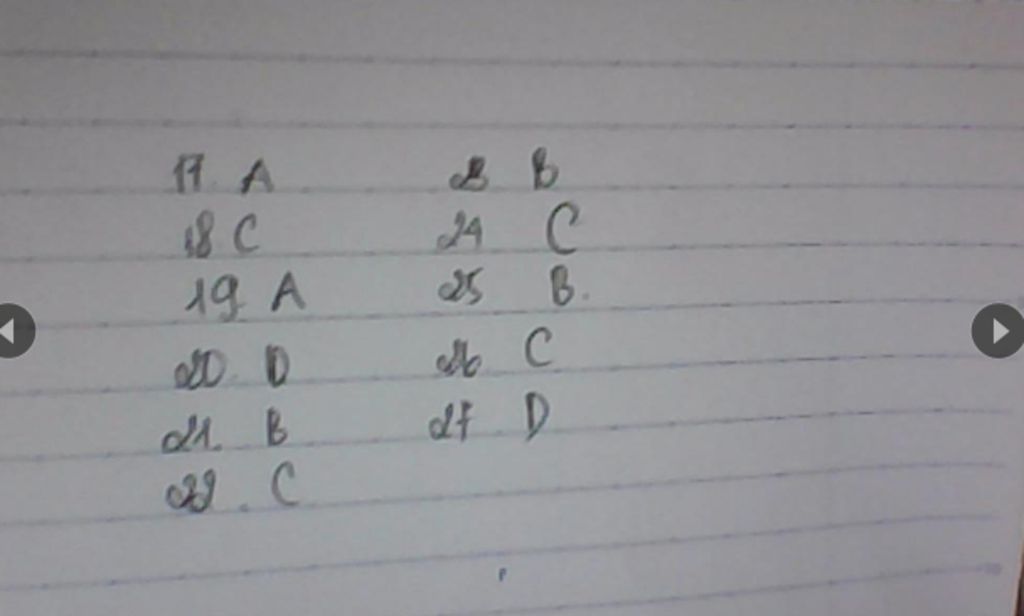 17. A
18 C
19 A
20. D
21. B
22. C
23 B
24 C
25 B.
26 C
27 D